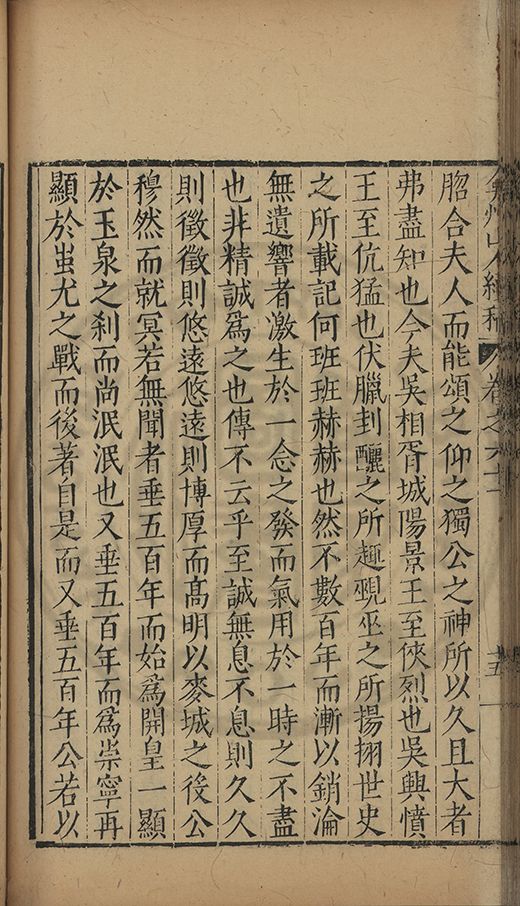 弇州山人續稿 卷之六十一 十五
脗合夫人而能頌之仰之獨公之神所以久且大者
弗盡知也今夫吳相胥城陽景王至俠烈也吳興憤
王至伉猛也伏臘刲釃之所趣覡巫之所揚栩世史
之所載記何班班赫赫也然不數百年而漸以銷淪
無遺響者激生於一念之發而氣用於一時之不盡
也非精誠爲之也傳不云乎至誠無息不息則久久
則徵徵則悠遠悠遠則博厚而高明以麥城之後公
穆然而就冥若無聞者垂五百年而始爲開皇一顯
於玉泉之刹而尚泯泯也又垂五百年而爲崇寧再
顯於蚩尤之戰而後著自是而又垂五百年公若以